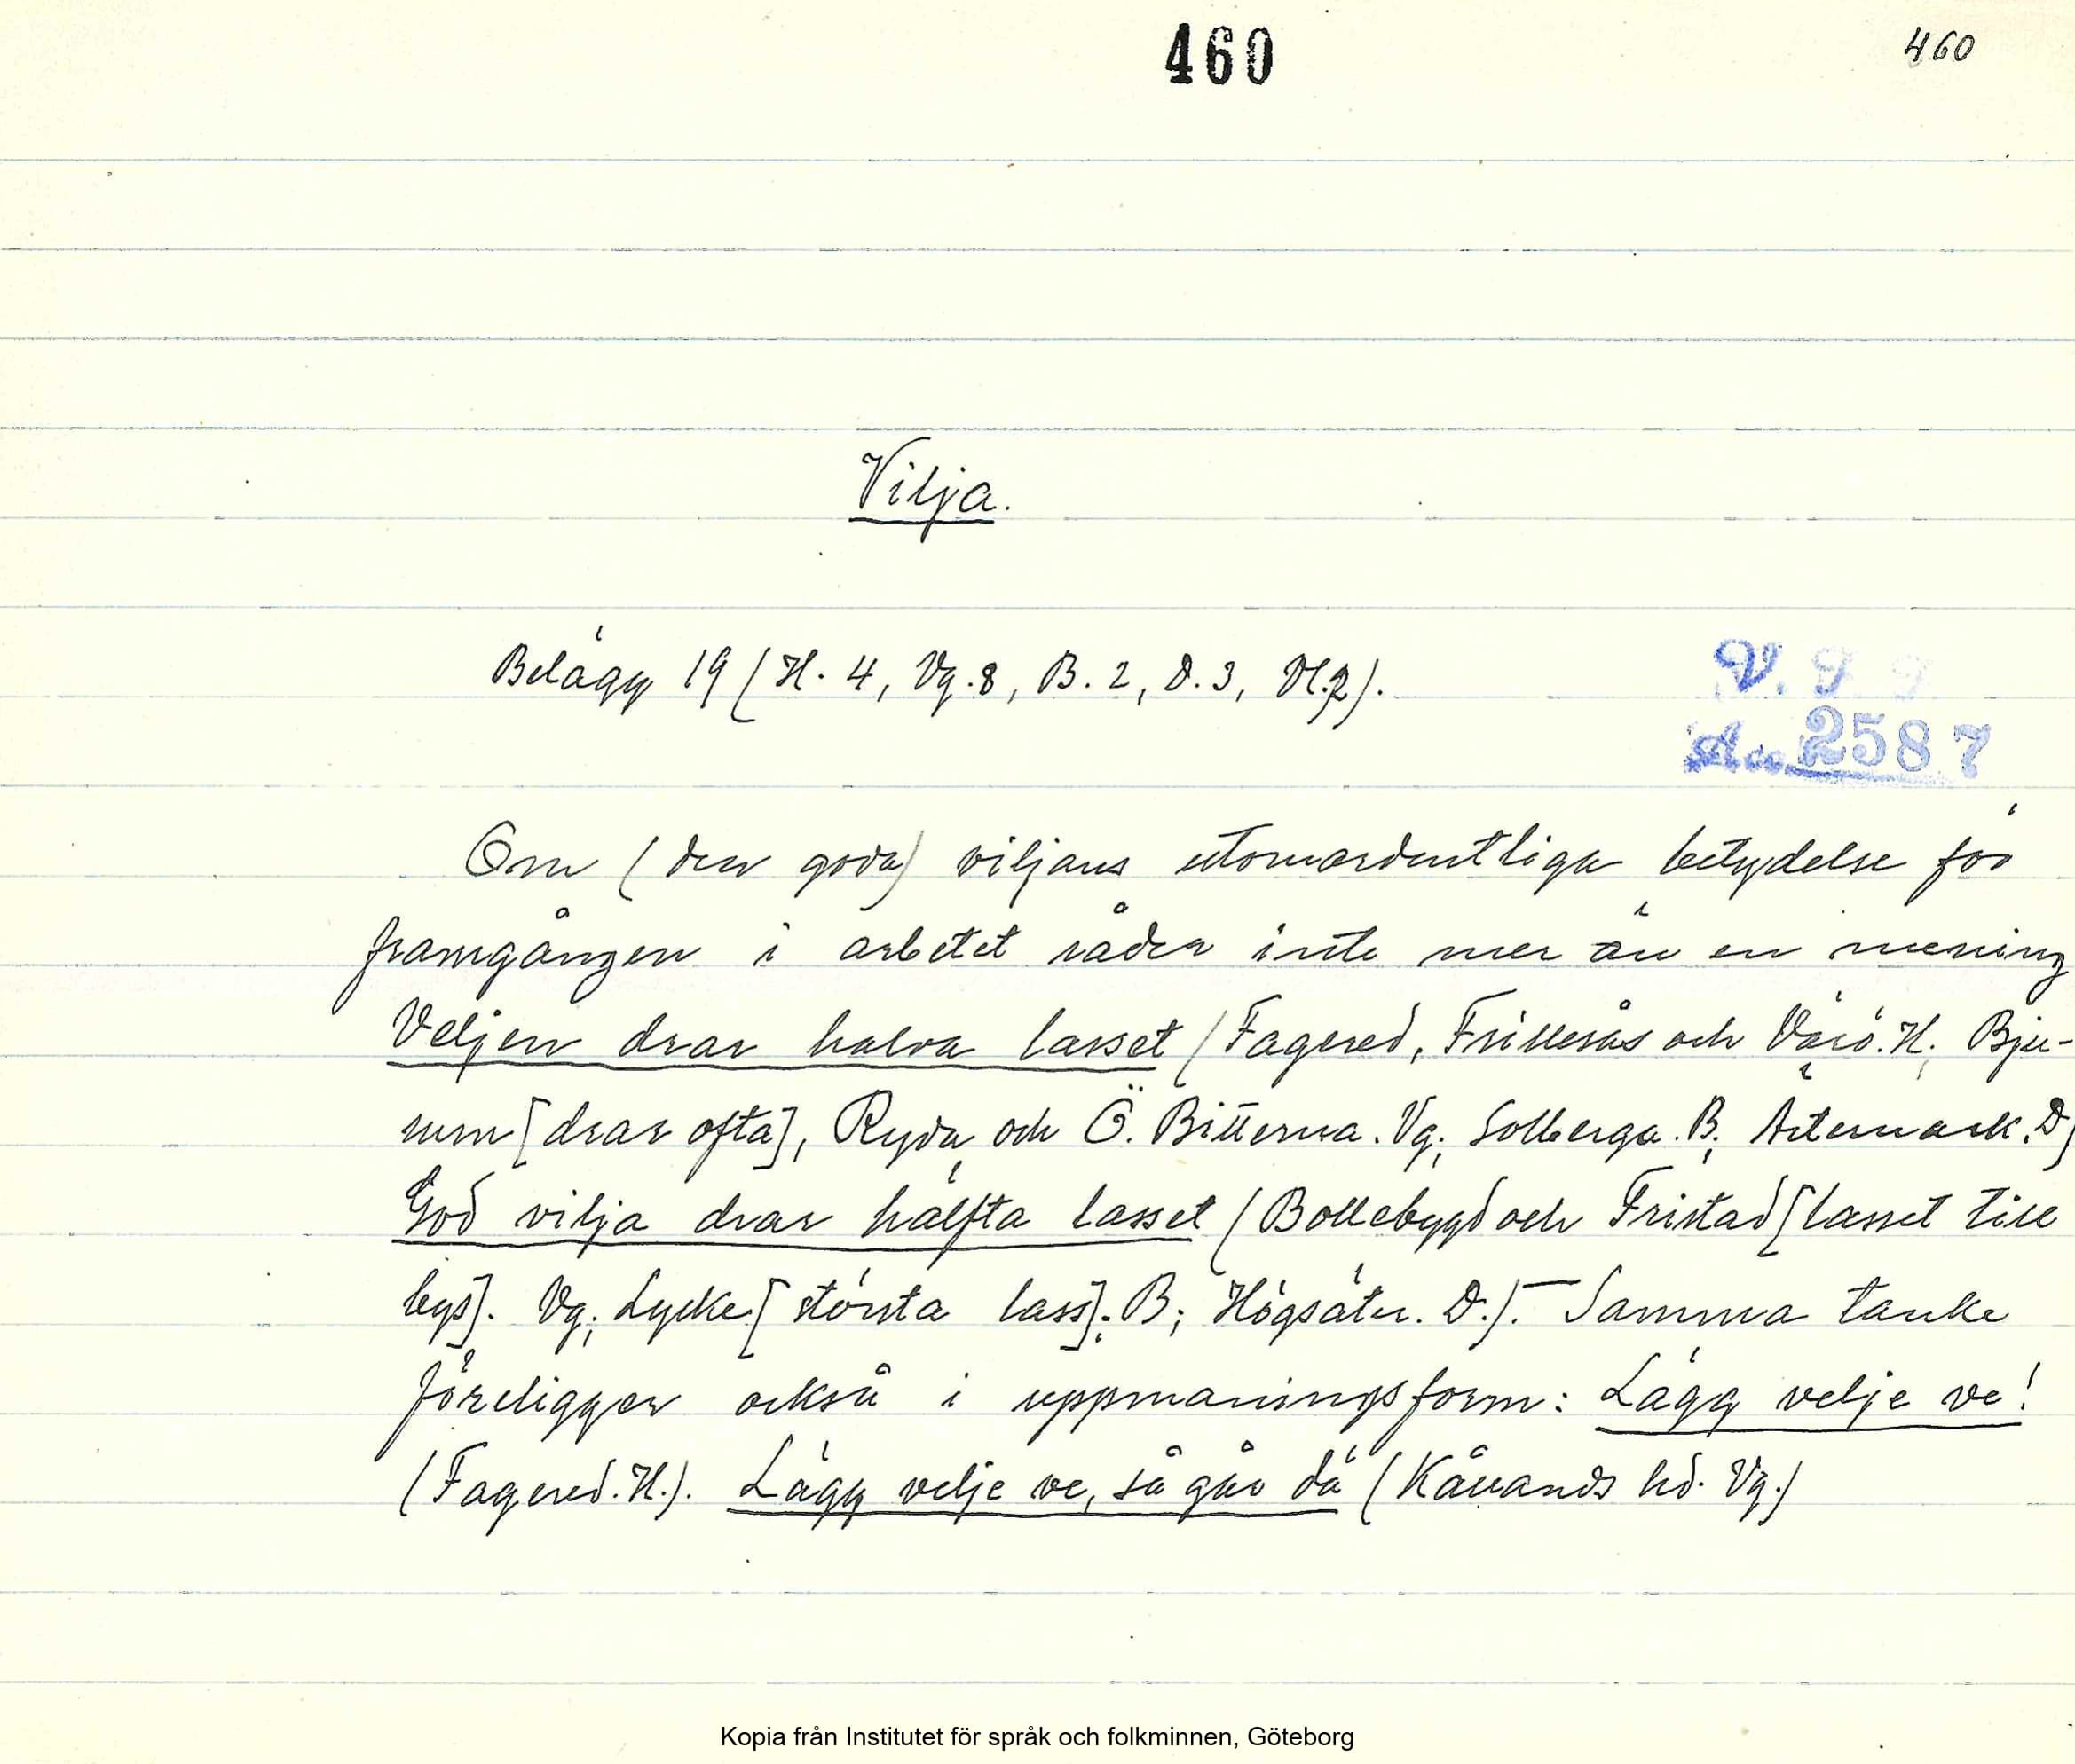 460
460
Vilja.
Belägg 19 (H. 4, Vg. 8, B. 2, D. 3, Vl. 2).
V. G. G.
Acc. 2587
Om (den goda) viljans utomordentliga betydelse för
framgången i arbetet råder inte mer än en mening
Veljen drar halva lasset (Fagered, Frillesås och Värö. H; Bju-
rum [drar ofta], Ryda och Ö. Bitterna. Vg; Solberga. B; Ärtemark. D)
God vilja drar hälfta lasset (Bollebygd och Fristad [lasset till
bys]. Vg; Lycke [största lass]. B; Högsäter. D.). — Samma tanke
föreligger också i uppmaningsform: Lägg velje ve!
(Fagered. H.). Lägg velje ve, så går dä (Kållands hd. Vg.)
Kopia från Institutet för språk och folkminnen, Göteborg